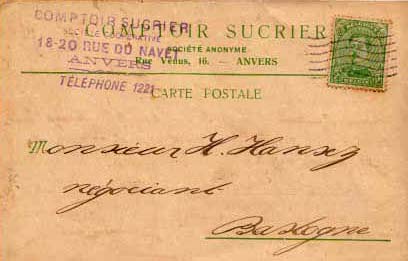 COMPTOIR SUCRIER
COMPTOIR SUCRIER
SOCIÉTÉ ANONYME
18-20 RUE DU NAVET
Rue Vénus, 16. — ANVERS
ANVERS
TÉLÉPHONE 1221
CARTE POSTALE
Monsieur H.
négociant
Bastogne